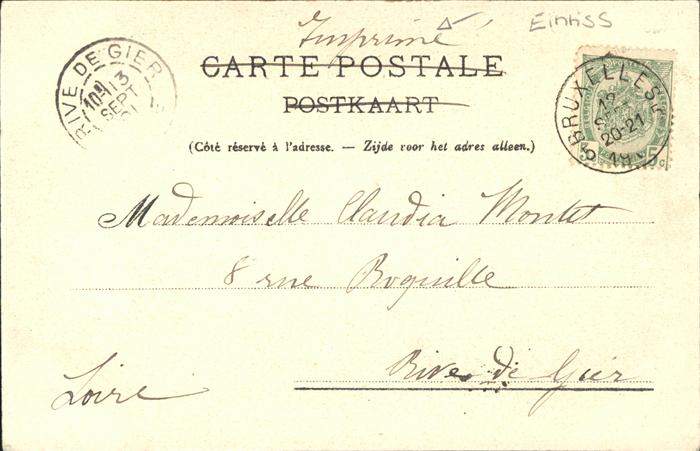 Imprimé
Eintiss
CARTE POSTALE
POSTKAART
(Côté réservé à l'adresse. — Zijde voor het adres alleen.)
RIVE DE GIER
13
SEPT
BRUXELLES
12
SEPT
20-21
5 5
Mademoiselle Claudia Montet
8 rue
Rive de Gier
Loire